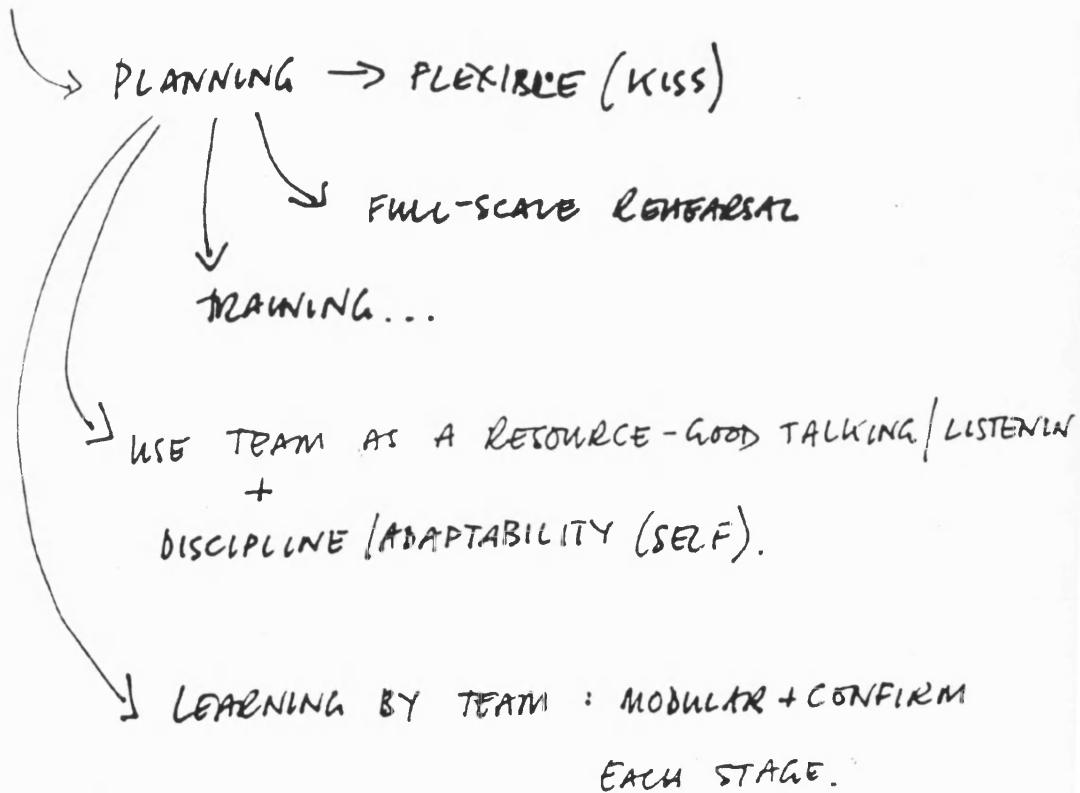 PLANNING → FLEXIBLE (KISS)
FULL-SCALE REHEARSAL
TRAINING...
USE TEAM AS A RESOURCE - GOOD TALKING/LISTENIN
+
DISCIPLINE/ADAPTABILITY (SELF).
LEARNING BY TEAM : MODULAR + CONFIRM
EACH STAGE.